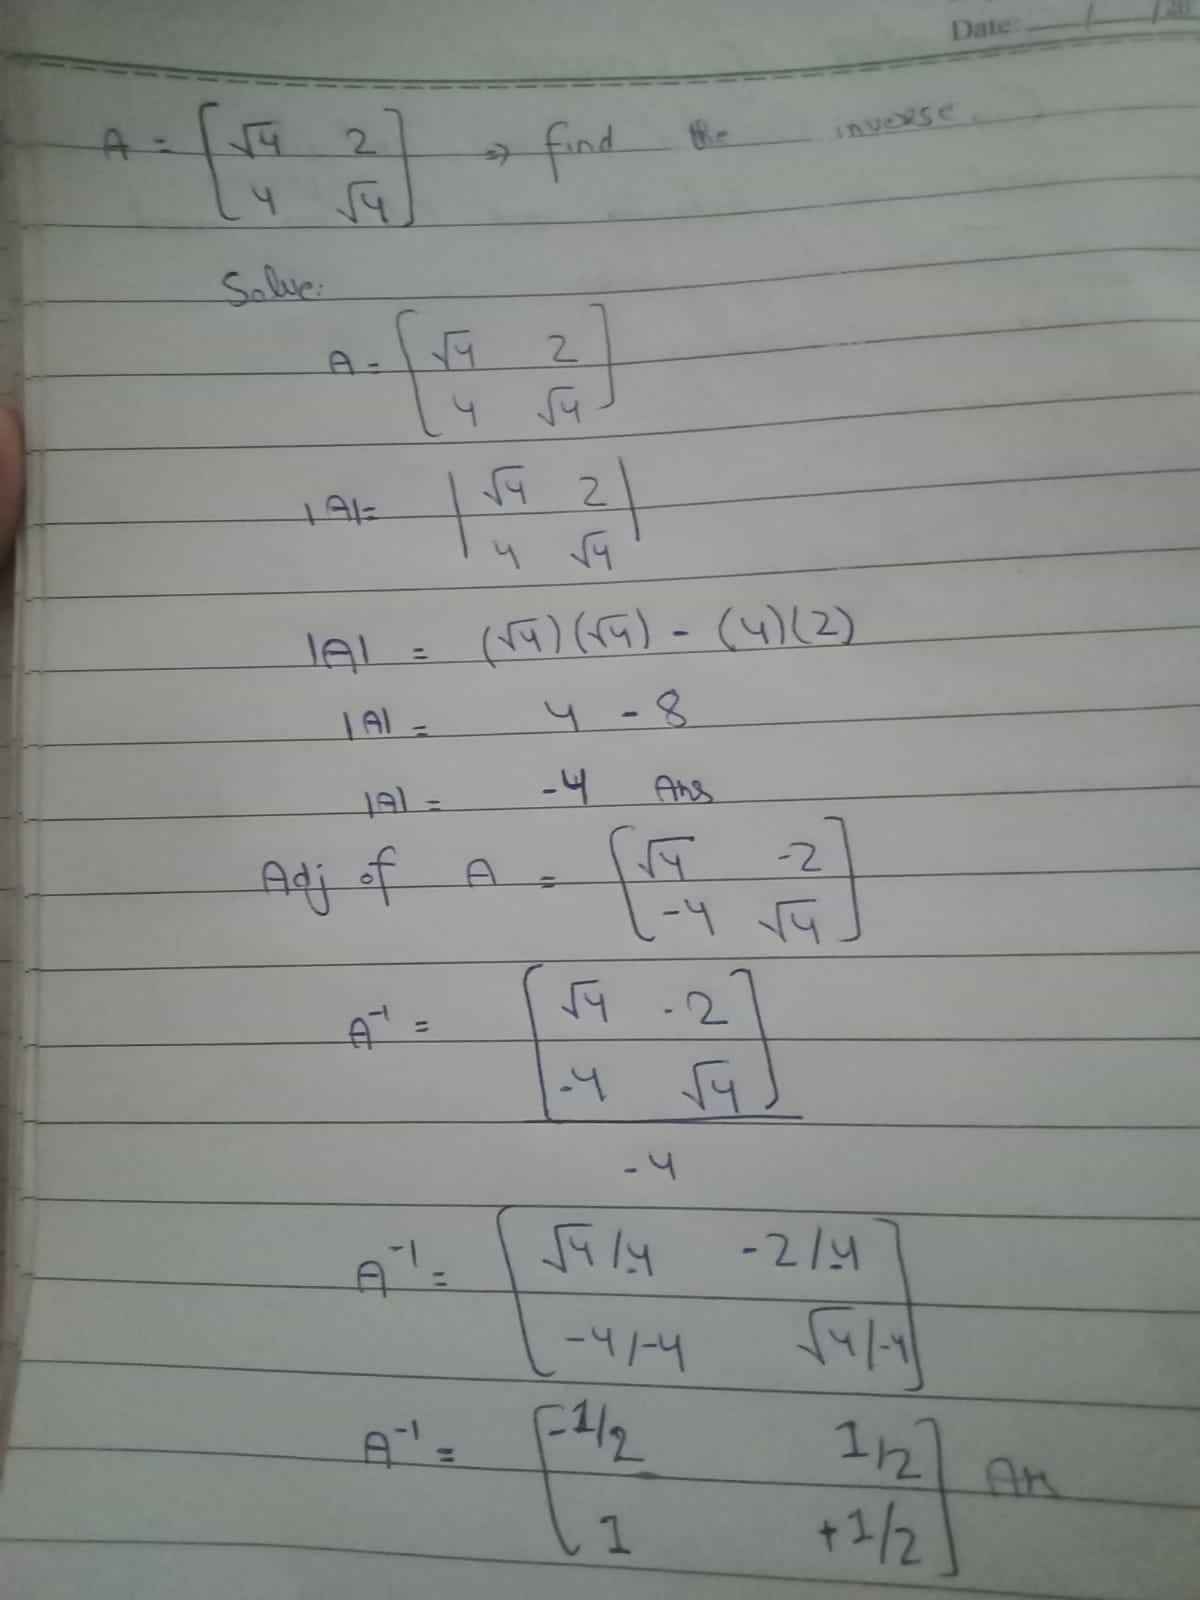 Date: / /20
A = [√4 2
4 √4] ⇒ find the inverse
Solve:
A = [√4 2
4 √4]
|A| = |√4 2
4 √4|
|A| = (√4)(√4) - (4)(2)
|A| = 4 - 8
|A| = -4 Ans
Adj of A = [√4 -2
-4 √4]
A⁻¹ = [√4 -2
-4 √4]
-4
A⁻¹ = [√4/-4 -2/-4
-4/-4 √4/-4]
A⁻¹ = [-1/2 1/2
1 +1/2] An